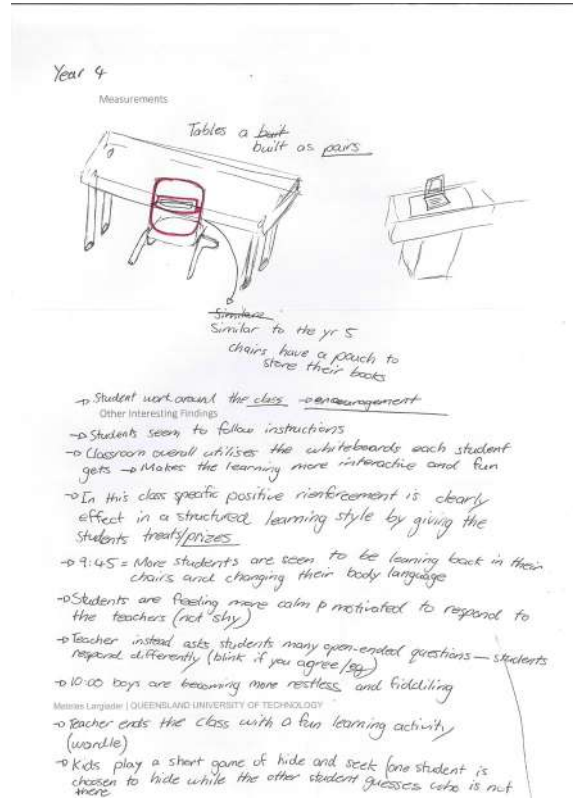 Year 4
Measurements
Tables a built
built as pairs
Similare
Similar to the yr 5
chairs have a pouch to
store their books
→ Student work around the class → encouragement
Other Interesting Findings
→ Students seem to follow instructions
→ Classroom overall utilises the whiteboards each student
gets → Makes the learning more interactive and fun
→ In this class specific positive rienforcement is clearly
effect in a structured learning style by giving the
students treats/prizes
→ 9:45 = More students are seen to be leaning back in their
chairs and changing their body language
→ Students are feeling more calm & motivated to respond to
the teachers (not shy)
→ Teacher instead asks students many open-ended questions — students
respond differently (blink if you agree/eg)
→ 10:00 boys are becoming more restless and fiddiling
Largiader | QUEENSLAND UNIVERSITY OF TECHNOLOGY
→ Teacher ends the class with a fun learning activity
(wordle)
→ Kids play a short game of hide and seek (one student is
choosen to hide while the other student guesses who is not
there